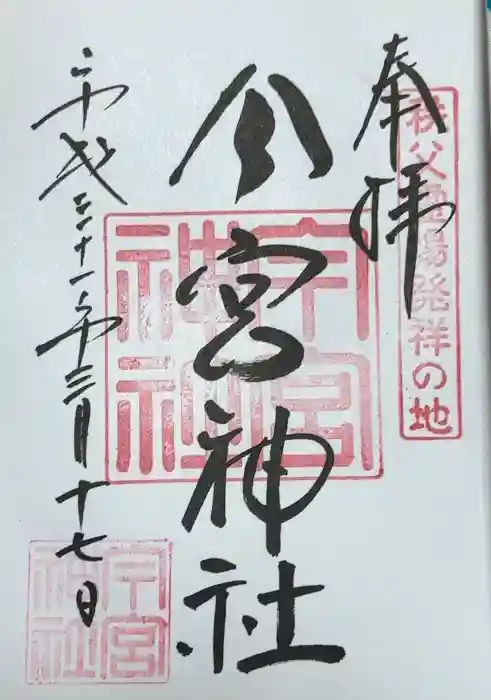 秩父霊場発祥の地
奉拝
今宮神社
今宮
神社
平成三十一年三月十七日
今宮
神社